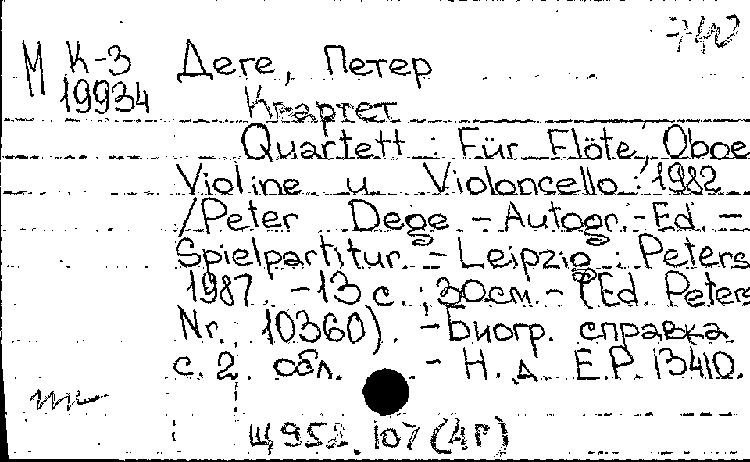 740
М К-3 Деге, Петер
19934
Квартет
Quartett : Für Flöte, Oboe
Violine u. Violoncello : 1982
/Peter Dege - Autogr.-Ed. -
Spielpartitur. - Leipzig : Peters
1987. - 13 с. ; 30см. - (Ed. Peters
Nr. 10360). - Биогр. справка
с. 2 обл. - Н. д. Е.Р. 13410.
Щ952.107(4Г)